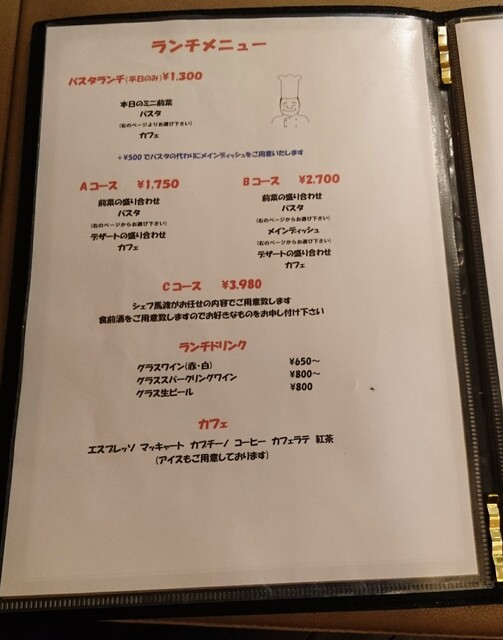 ランチメニュー
パスタランチ(平日のみ)¥1,300
本日のミニ前菜
パスタ
(右のページよりお選び下さい)
カフェ
+¥500でパスタの代わりにメインディッシュをご用意いたします
Aコース ¥1,750
前菜の盛り合わせ
パスタ
(右のページからお選び下さい)
デザートの盛り合わせ
カフェ
Bコース ¥2,700
前菜の盛り合わせ
パスタ
(右のページからお選び下さい)
メインディッシュ
(右のページからお選び下さい)
デザートの盛り合わせ
カフェ
Cコース ¥3,980
シェフ馬渡がお任せの内容でご用意致します
食前酒をご用意致しますのでお好きなものをお申し付け下さい
ランチドリンク
グラスワイン(赤・白) ¥650~
グラススパークリングワイン ¥800~
グラス生ビール ¥800
カフェ
エスプレッソ マッキャート カプチーノ コーヒー カフェラテ 紅茶
(アイスもご用意しております)